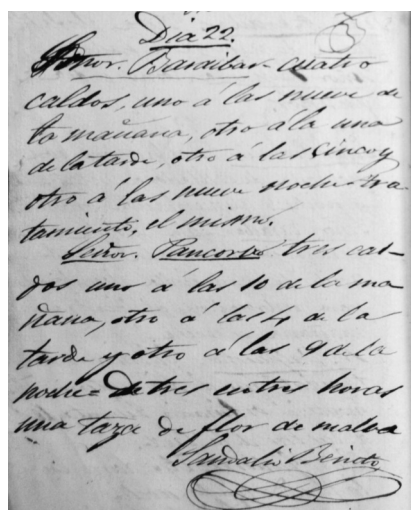 Dia 22.
Señor. Bardibar cuatro
caldos, uno á las nueve de
la mañana, otro á la una
de la tarde, otro á las cinco y
otro á las nueve noche = tra
tamiento, el mismo.
Señor. Pancorbo tres cal-
dos uno á las 10 de la ma
ñana, otro á las 4 de la
tarde y otro á las 9 de la
noche = De tres en tres horas
una taza de flor de malva
Sandalio Benito